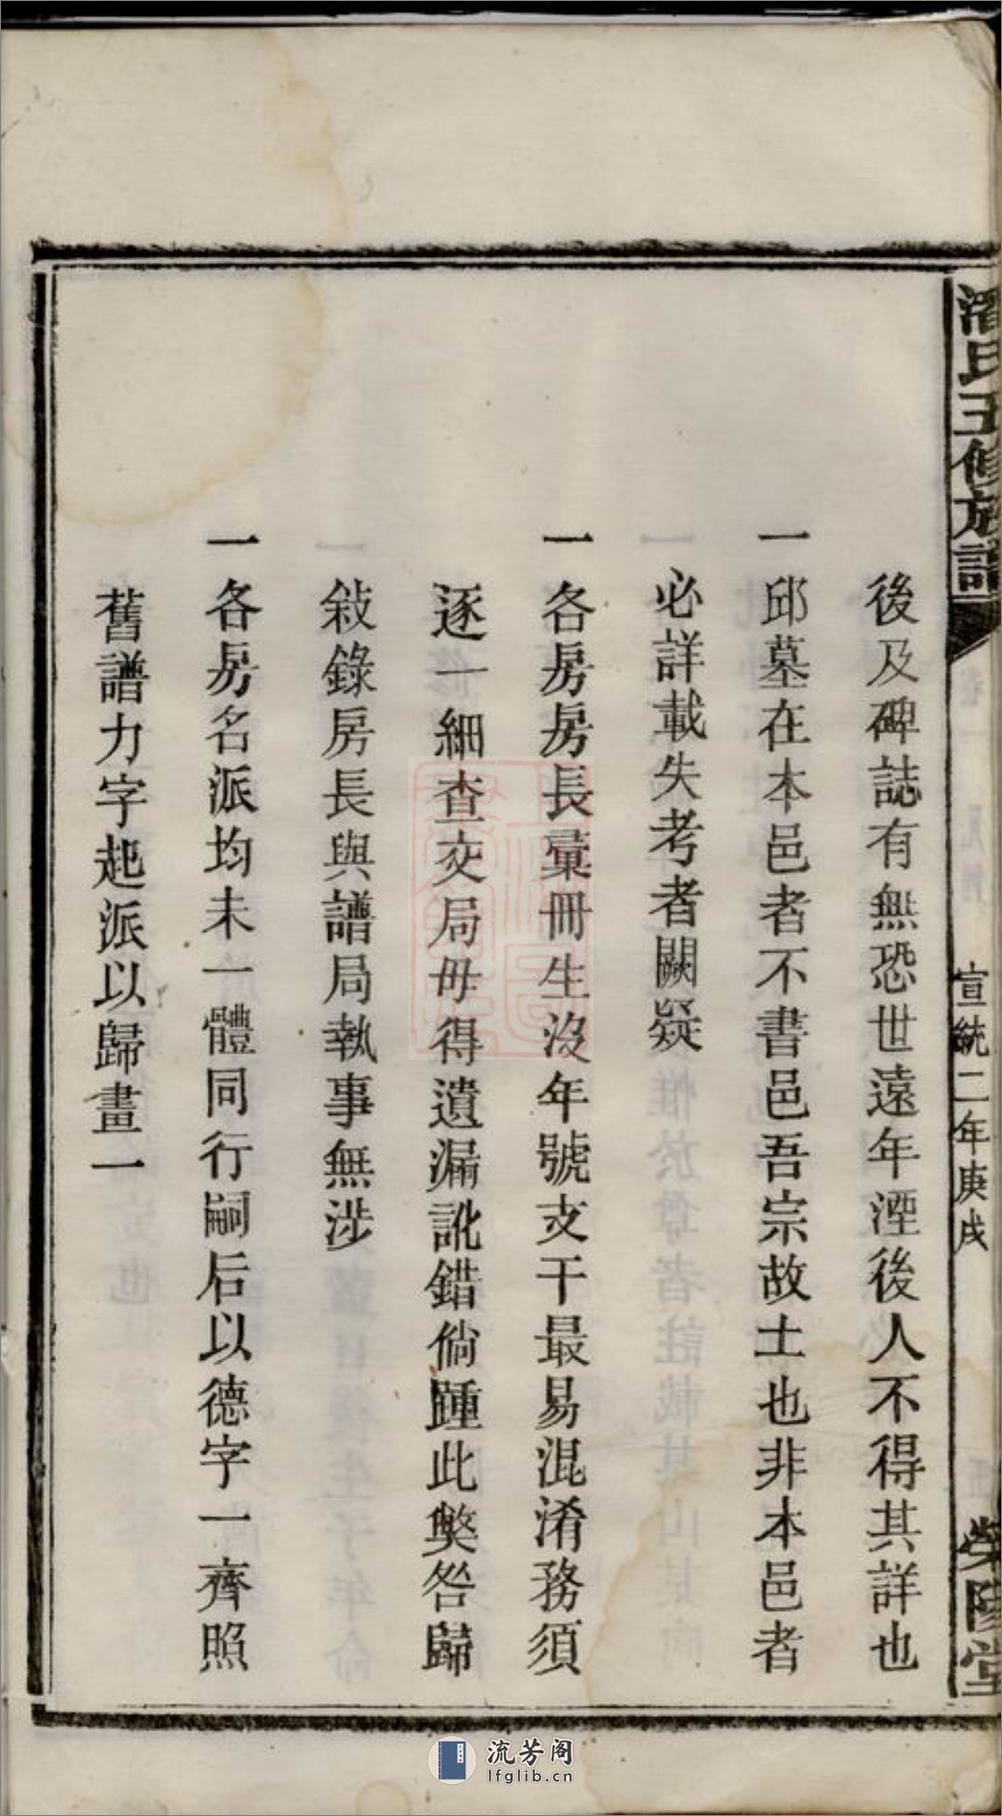 潘氏五修族譜
宣統二年庚戌
榮陽堂
後及碑誌有無恐世遠年湮後人不得其詳也
一邱墓在本邑者不書邑吾宗故土也非本邑者
必詳載失考者闕疑
一各房房長彙冊生沒年號支干最易混淆務須
逐一細查交局毋得遺漏訛錯倘踵此獘咎歸
敍錄房長與譜局執事無涉
一各房名派均未一體同行嗣后以德字一齊照
舊譜力字起派以歸畫一
流芳阁
lfglib.cn